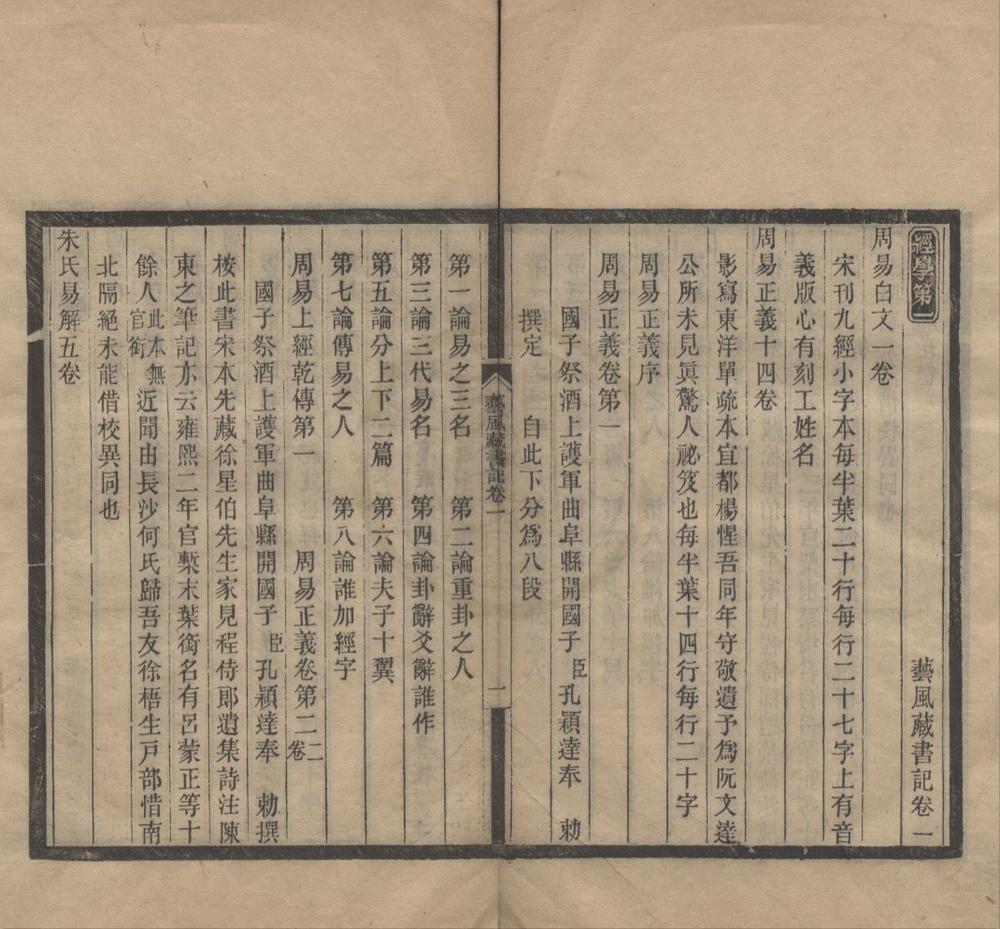 經學第一　藝風藏書記卷一
周易白文一卷
宋刊九經小字本每半葉二十行每行二十七字上有音
義版心有刻工姓名
周易正義十四卷
影寫東洋單疏本宜都楊惺吾同年守敬遺予爲阮文達
公所未見眞驚人祕笈也每半葉十四行每行二十字
周易正義序
周易正義卷第一
國子祭酒上護軍曲阜縣開國子臣孔穎達奉　勅
撰定　自此下分爲八段
藝風藏書記卷一　一
第一論易之三名　第二論重卦之人
第三論三代易名　第四論卦辭爻辭誰作
第五論分上下二篇　第六論夫子十翼
第七論傳易之人　第八論誰加經字
周易上經乾傳第一　周易正義卷第二卷二
國子祭酒上護軍曲阜縣開國子臣孔穎達奉　勅撰
桉此書宋本先藏徐星伯先生家見程侍郞遺集詩注陳
東之筆記亦云雍熙二年官槧末葉銜名有呂蒙正等十
餘人此本無官銜近聞由長沙何氏歸吾友徐梧生戸部惜南
北隔絕未能借校異同也
朱氏易解五卷